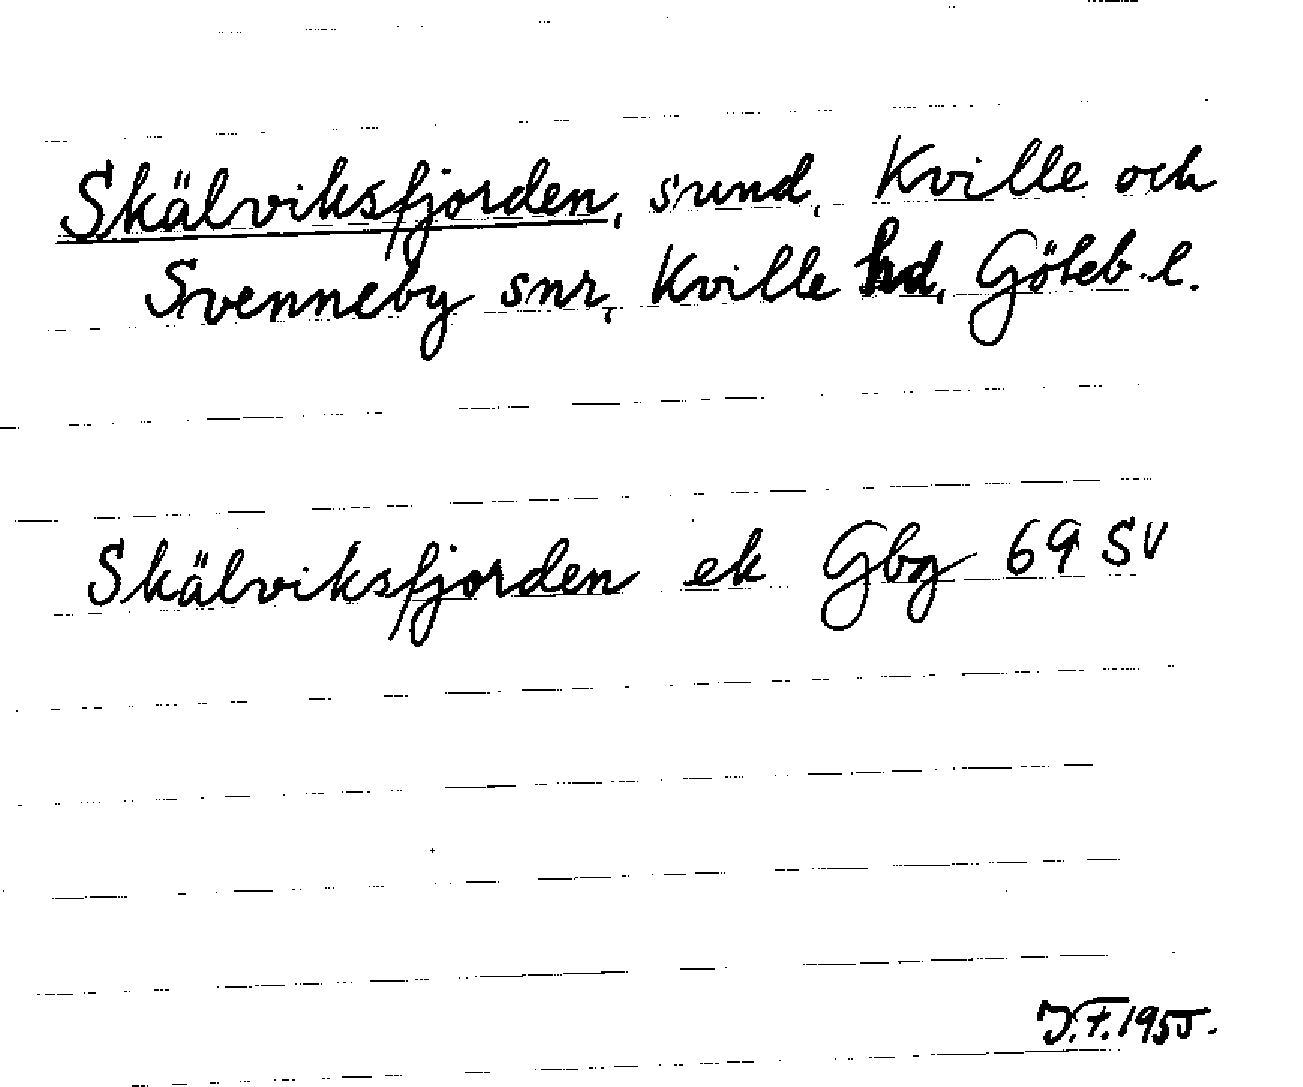 Skälviksfjorden, sund, Kville och
Svenneby snr, Kville hd, Göteb. l.
Skälviksfjorden ek Gbg 69 SV
J.F. 1955.